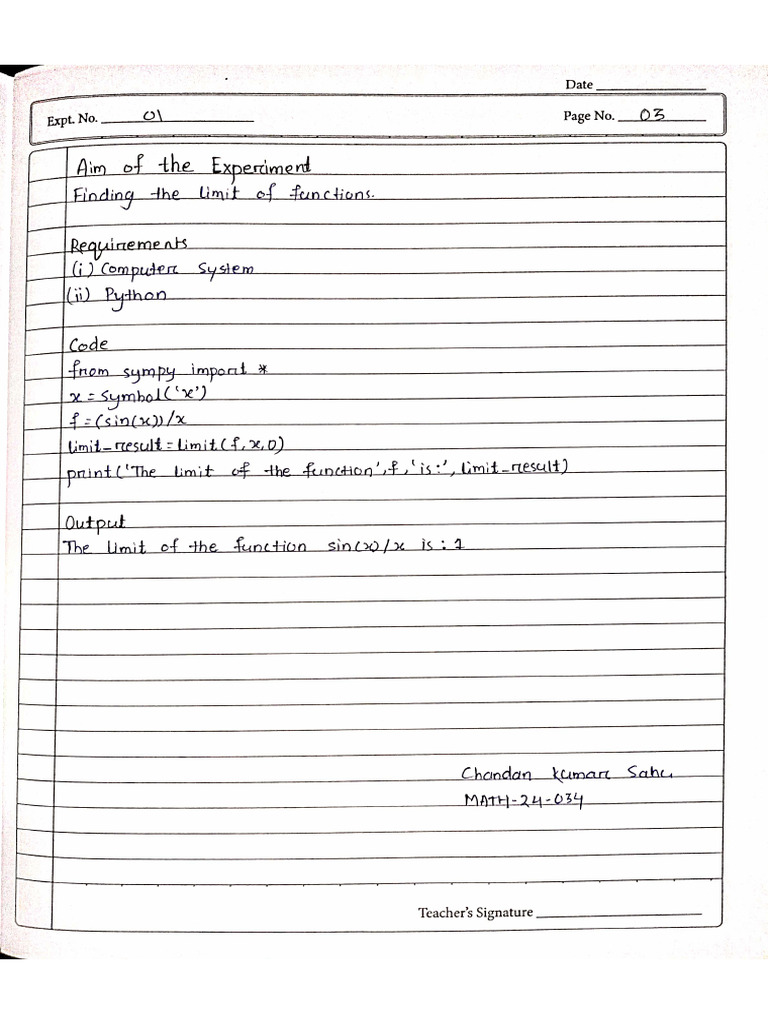 Date
Expt. No. 01
Page No. 03
Aim of the Experiment
Finding the limit of functions.
Requirements
(i) Computer System
(ii) Python
Code
from sympy import *
x = Symbol('x')
f = (sin(x))/x
limit_result = limit(f, x, 0)
print('The limit of the function', f, 'is:', limit_result)
Output
The limit of the function sin(x)/x is : 1
Chandan Kumar Sahu
MATH-24-034
Teacher's Signature